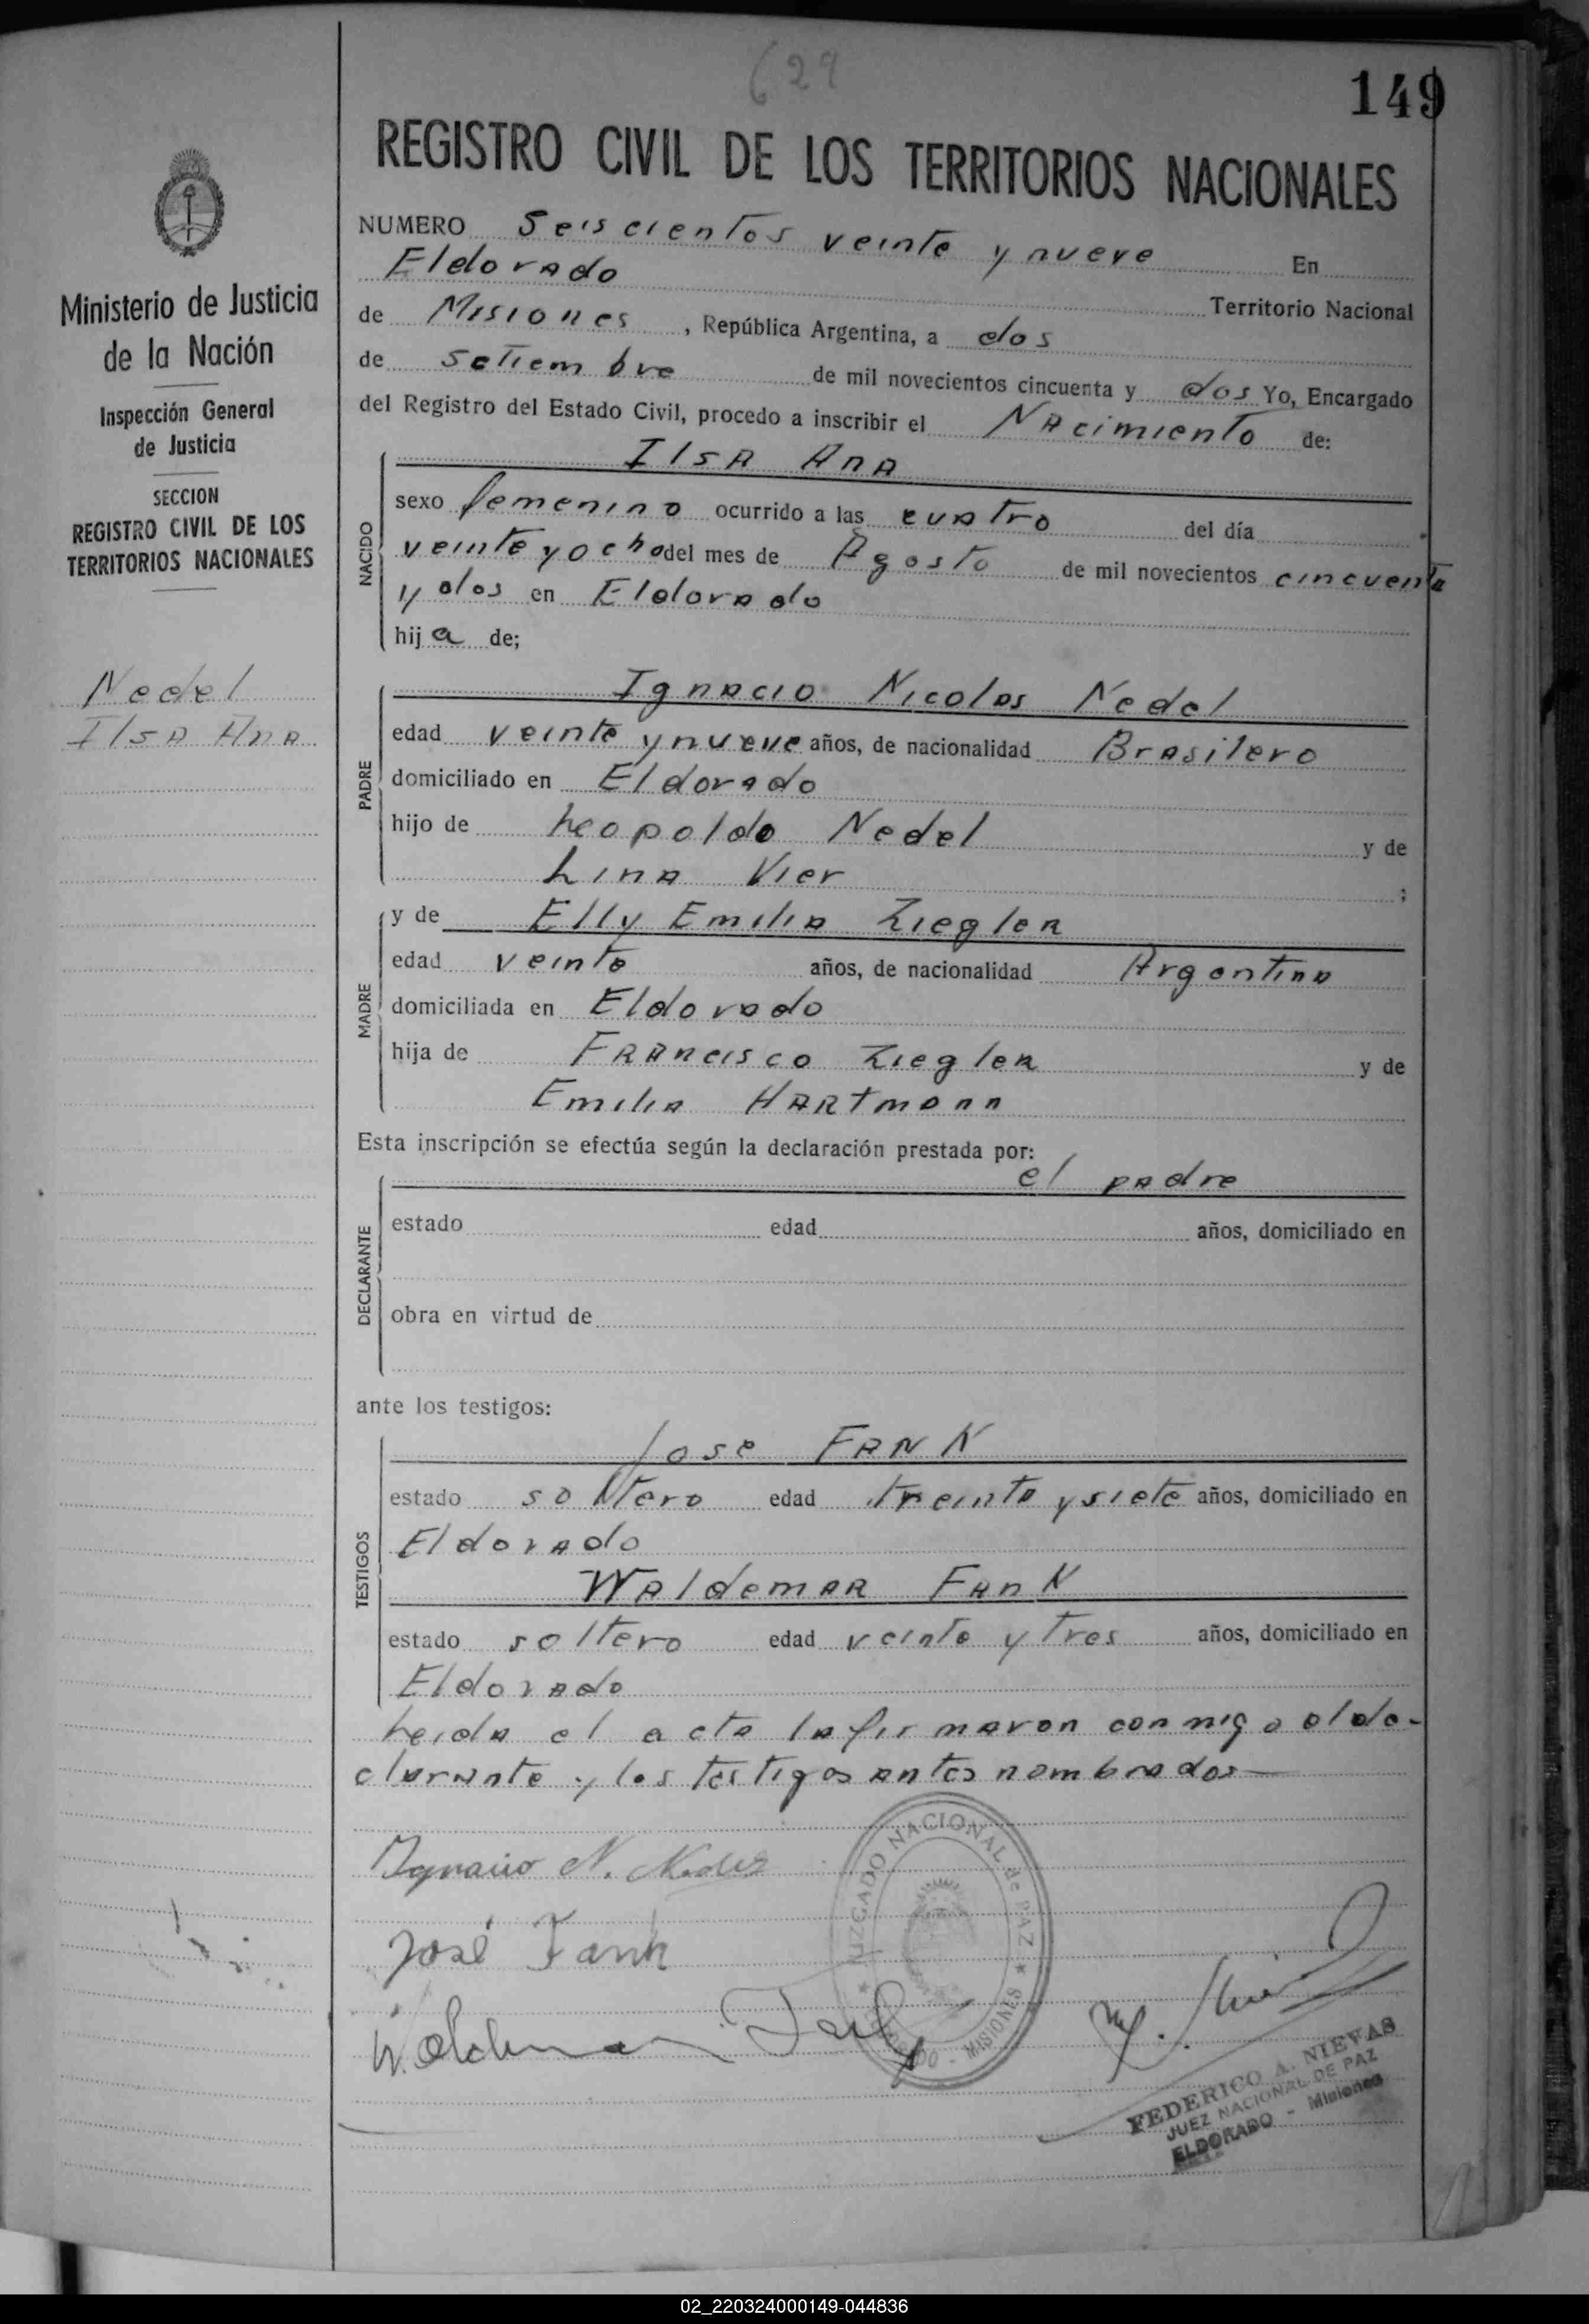 629
149
REGISTRO CIVIL DE LOS TERRITORIOS NACIONALES
NUMERO Seiscientos veinte y nueve En
Eldorado Territorio Nacional
de Misiones, República Argentina, a dos
de setiembre de mil novecientos cincuenta y dos Yo, Encargado
del Registro del Estado Civil, procedo a inscribir el Nacimiento de:
Ministerio de Justicia
de la Nación
Inspección General
de Justicia
SECCION
REGISTRO CIVIL DE LOS
TERRITORIOS NACIONALES
Nedel
Ilsa Ana
NACIDO
Ilsa Ana
sexo femenino ocurrido a las cuatro del día
veinte y ocho del mes de Agosto de mil novecientos cincuenta
y dos en Eldorado
hija de;
PADRE
Ignacio Nicolas Nedel
edad veinte y nueve años, de nacionalidad Brasilero
domiciliado en Eldorado
hijo de Leopoldo Nedel y de
Lina Vier ;
MADRE
y de Elly Emilia Ziegler
edad veinte años, de nacionalidad Argentina
domiciliada en Eldorado
hija de Francisco Ziegler y de
Emilia Hartmann
Esta inscripción se efectúa según la declaración prestada por:
DECLARANTE
el padre
estado edad años, domiciliado en
obra en virtud de
ante los testigos:
TESTIGOS
Jose Fank
estado soltero edad treinta y siete años, domiciliado en
Eldorado
Waldemar Fank
estado soltero edad veinte y tres años, domiciliado en
Eldorado
Leida el acta la firmaron conmigo el de-
clarante y los testigos antes nombrados
Ignacio N. Nedel
José Fank
Waldemar Fank
JUZGADO NACIONAL de PAZ
ELDORADO - MISIONES
FEDERICO A. NIEVAS
JUEZ NACIONAL DE PAZ
ELDORADO - Misiones
02_220324000149-044836